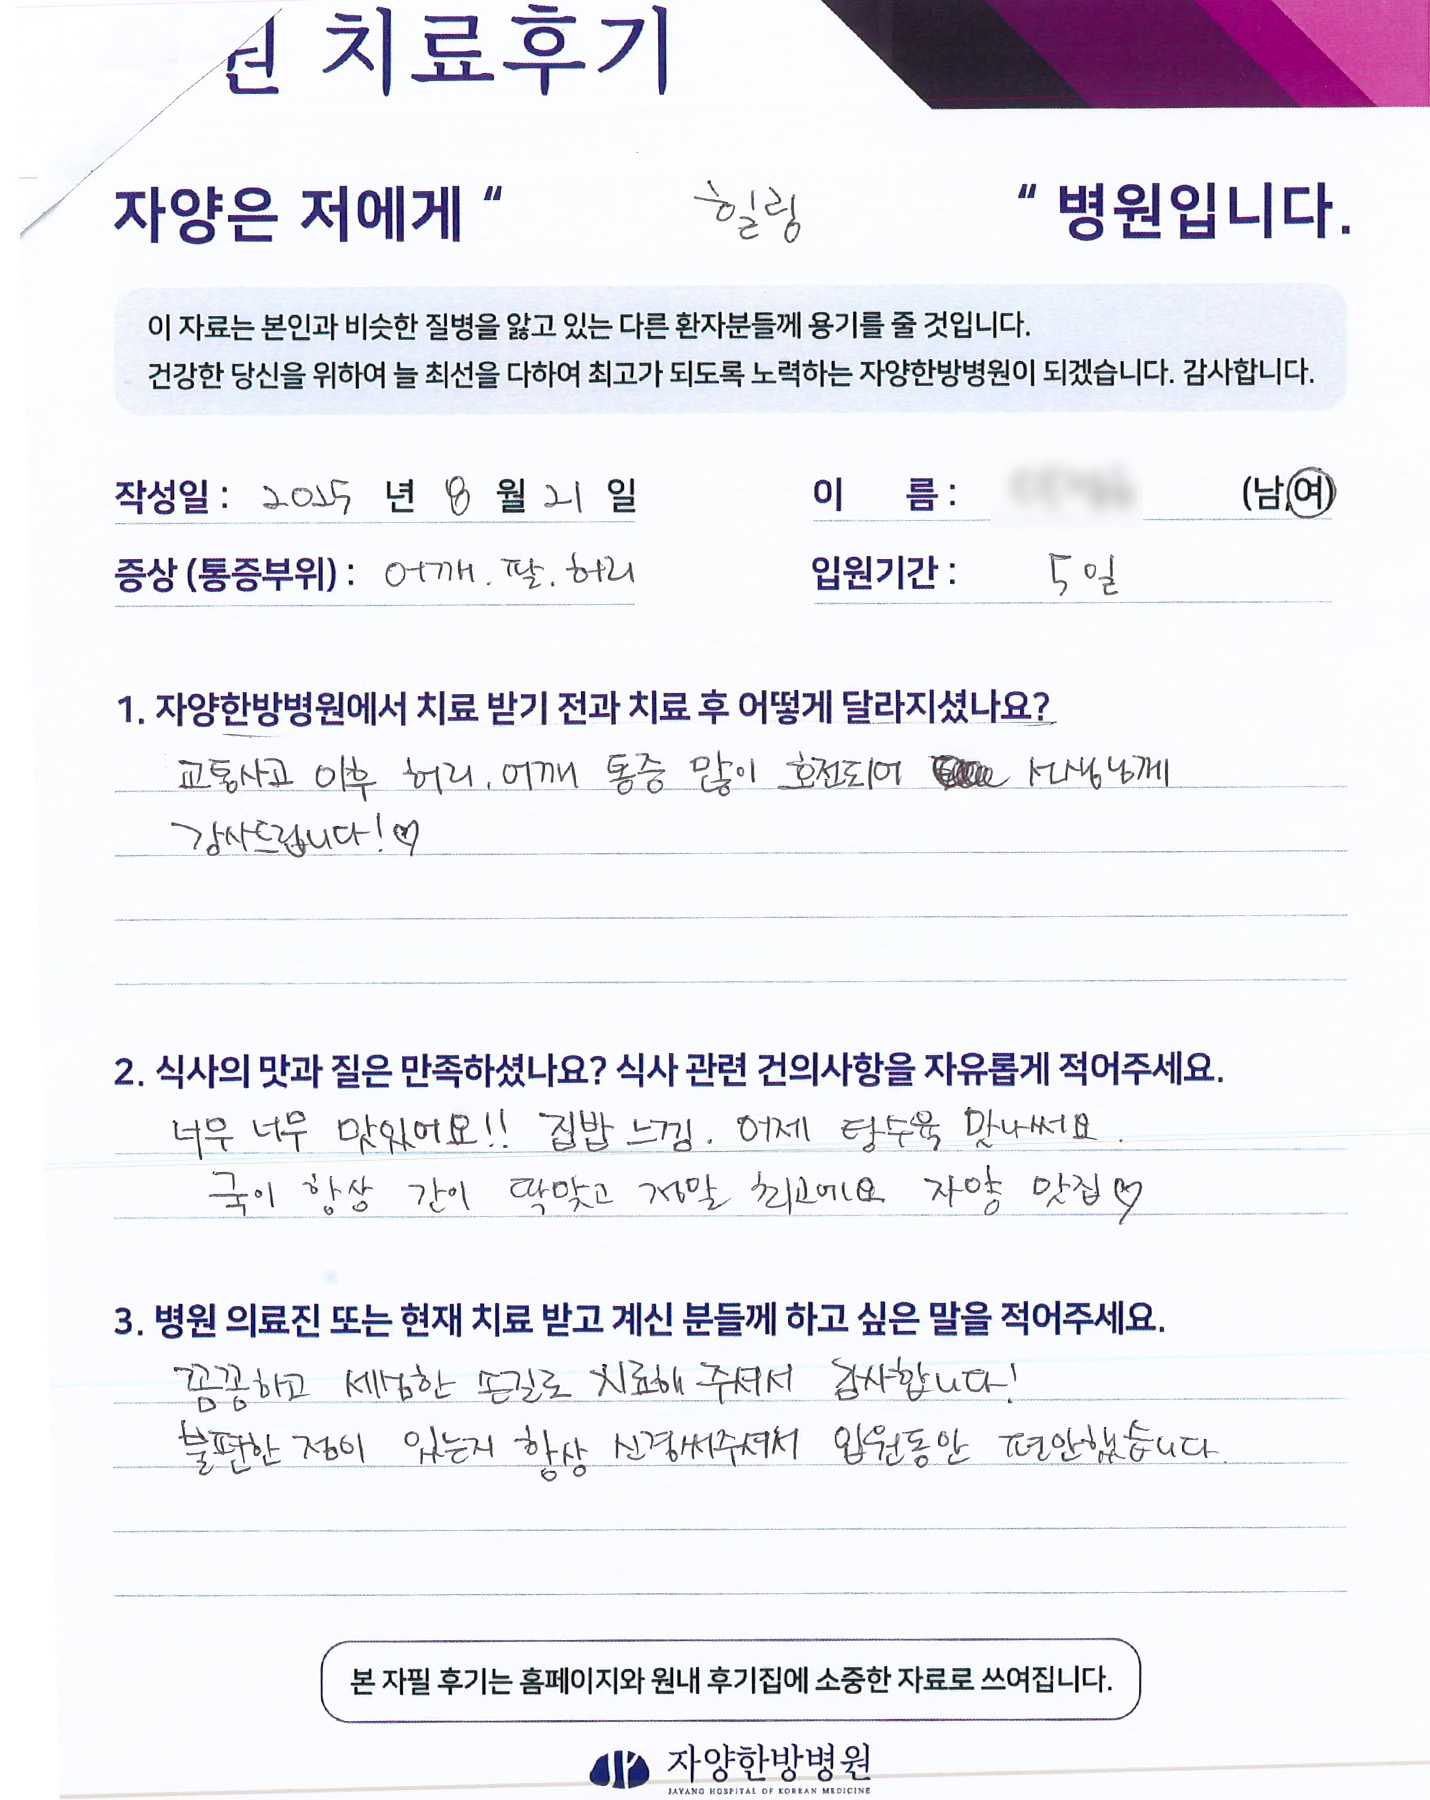 원 치료후기
자양은 저에게 “ 힐링 “ 병원입니다.
이 자료는 본인과 비슷한 질병을 앓고 있는 다른 환자분들께 용기를 줄 것입니다.
건강한 당신을 위하여 늘 최선을 다하여 최고가 되도록 노력하는 자양한방병원이 되겠습니다. 감사합니다.
작성일 : 2025 년 8 월 21 일 이 름 : (남,여)
증상 (통증부위) : 어깨. 팔. 허리 입원기간 : 5일
1. 자양한방병원에서 치료 받기 전과 치료 후 어떻게 달라지셨나요?
교통사고 이후 허리, 어깨 통증 많이 호전되어 선생님께
감사드립니다!♡
2. 식사의 맛과 질은 만족하셨나요? 식사 관련 건의사항을 자유롭게 적어주세요.
너무 너무 맛있어요!! 집밥 느낌. 어제 탕수육 맛나써요.
국이 항상 간이 딱맞고 정말 최고에요 자양 맛집♡
3. 병원 의료진 또는 현재 치료 받고 계신 분들께 하고 싶은 말을 적어주세요.
꼼꼼하고 세심한 손길로 치료해 주셔서 감사합니다!
불편한 점이 있는지 항상 신경써주셔서 입원동안 편안했습니다.
본 자필 후기는 홈페이지와 원내 후기집에 소중한 자료로 쓰여집니다.
자양한방병원
JAYANG HOSPITAL OF KOREAN MEDICINE